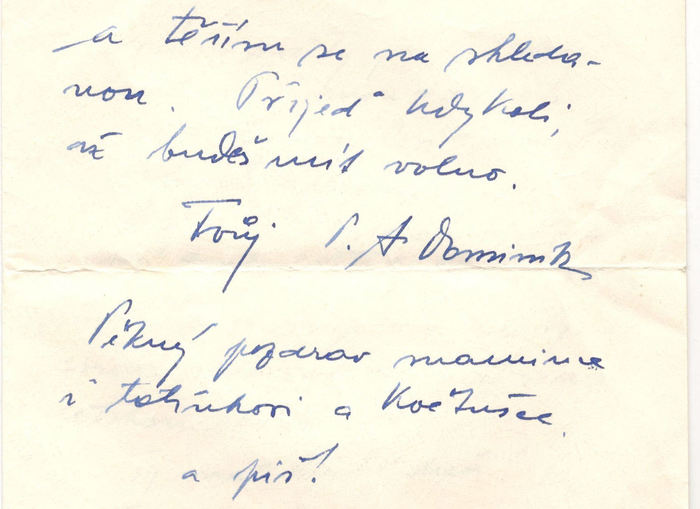 a těším se na shleda-
nou. Přijeď kdykoli,
až budeš mít volno.
Tvůj P. A Dominik
Pěkný pozdrav mamince
i tatínkovi a
a piš!